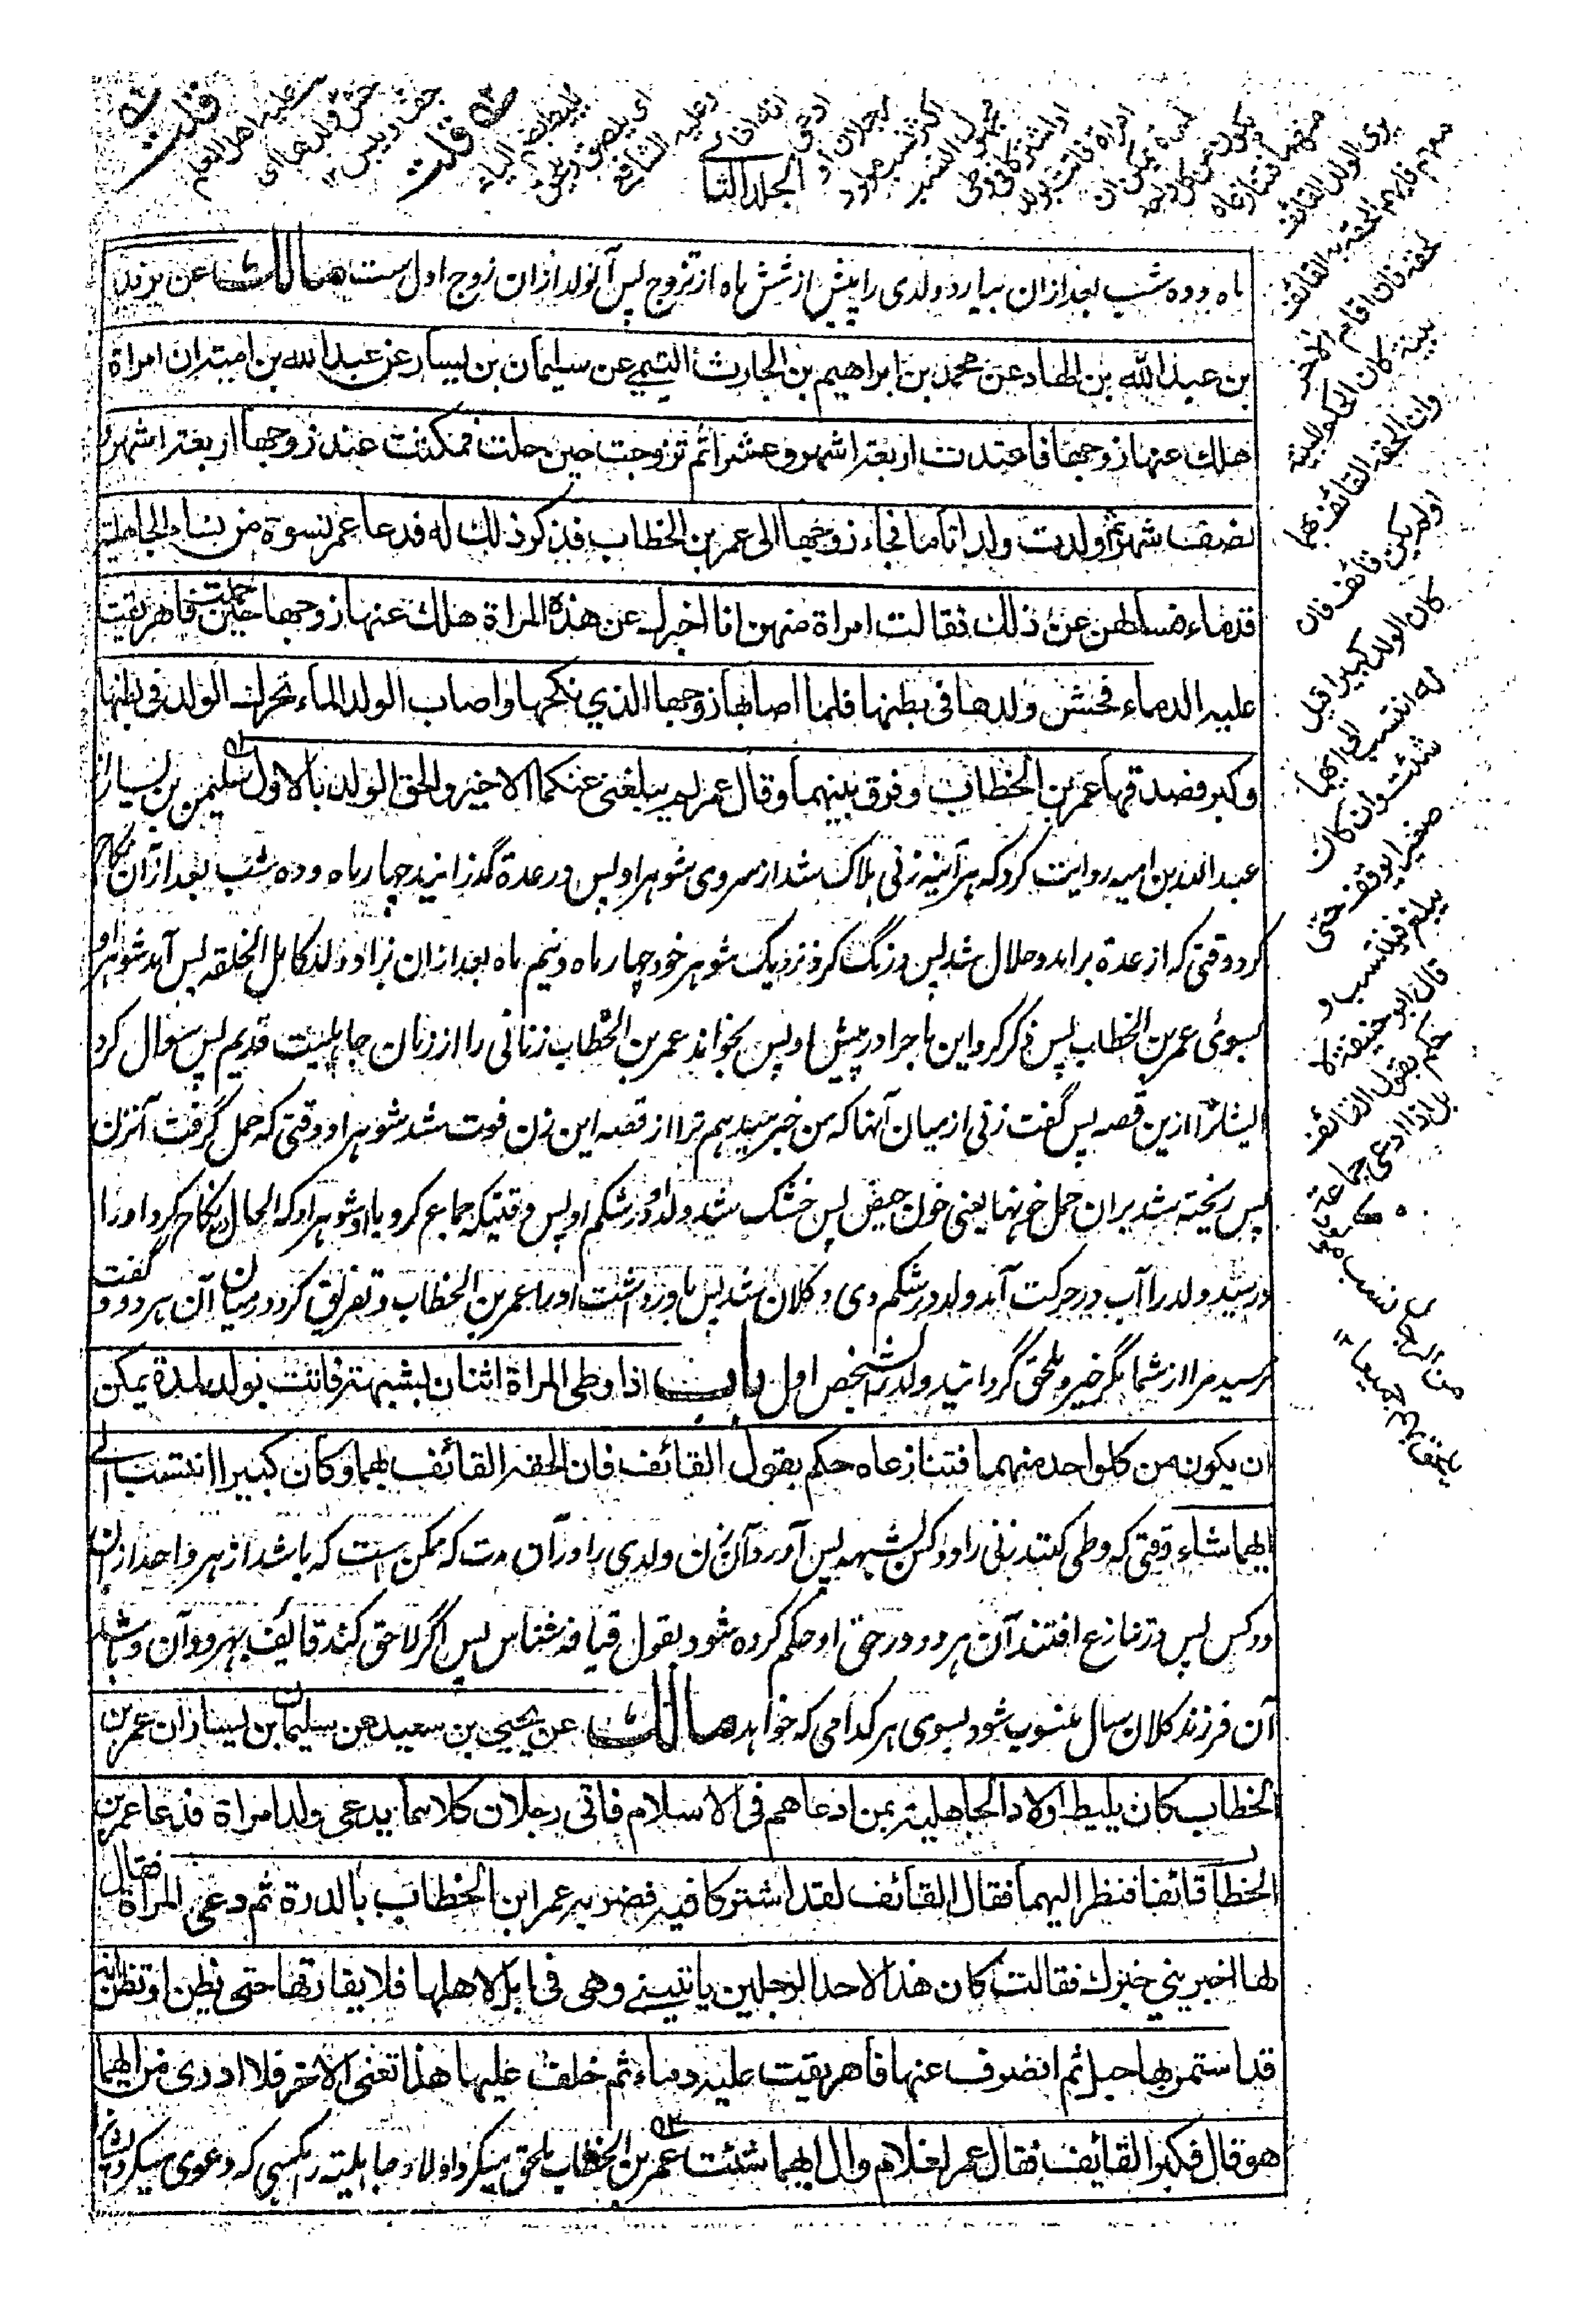 الجلد الثاني
ماه و ده شب بعد ازان بیارد ولدی را پیش از شش ماه از تزوج پس آنولد ازان زوج اول ست مالك عن يزيد
بن عبد الله بن الهاد عن محمد بن ابراهيم بن الحارث التيمي عن سليمان بن يسار عن عبد الله بن امية ان امراة
هلك عنها زوجها فاعتدت اربعة اشهر وعشرا ثم تزوجت حين حلت فمكثت عند زوجها اربعة اشهر و
نصف شهر ثم ولدت ولدا تاما فجاء زوجها الى عمر بن الخطاب فذكر ذلك له فدعا عمر نسوة من نساء الجاهلية
قدماء فسالهن عن ذلك فقالت امراة منهن انا اخبرك عن هذه المراة هلك عنها زوجها حين حملت فاهريقت
عليه الدماء فحش ولدها في بطنها فلما اصابها زوجها الذي نكحها واصاب الولد الماء تحرك الولد في بطنها
وكبر فصدقها عمر بن الخطاب وفرق بينهما وقال عمر لم يبلغني عنكما الا خير والحق الولد بالاول سليمن بن يسار از
عبد الله بن امیه روایت کرد که هر آئینه زنی هلاک شد از سروی شوهر او پس در عدة گذرانید چهار ماه و ده شب بعد ازان نکاح
کرد وقتی که از عدة براید و حلال شد پس درنگ کرد نزدیک شوهر خود چهار ماه و نیم ماه بعد ازان بزاد ولد کامل الخلقه پس آمد شوهر او
بسوئ عمر بن الخطاب پس ذکر کرد این ماجرا در پیش او پس بخواند عمر بن الخطاب زنانی را از زنان جاهلیت قدیم پس سوال کرد
ایشانرا ازین قصه پس گفت زنی از میان آنها که من خبر میدهم ترا از قصه این زن فوت شد شوهر او وقتی که حمل گرفت آنزن
پس ریخته شد بران حمل خونها یعنی خون حیض پس خشک شد ولد در شکم او پس وقتیکه جماع کرد با او شوهر او که الحال نکاح کرد او را
و رسید ولد را آب در حرکت آمد ولد در شکم وی و کلان شد پس باور داشت او را عمر بن الخطاب و تفریق کرد در میان آن هر دو و گفت
نرسید مرا از شما مگر خیر و ملحق گردانید ولد بشخص اول باب اذا وطي المراة اثنان بشبهة فاتت بولد لمدة يمكن
ان يكون من كل واحد منهما فتنازعاه حكم بقول القائف فان الحقه القائف بهما وكان كبيرا انتسب الى
ايهما شاء وقتی که وطی کنند زنی را دو کس بشبهه پس آورد آن زن ولدی را در آن مدت که ممکن است که باشد از هر واحد ازان
دو کس پس در تنازع افتند آن هر دو در حق او حکم کرده شود بقول قیافه شناس پس اگر لاحق کند قائف بهر دو آن و باشد
آن فرزند کلان سال منسوب شود بسوی هر کدامی که خواهد مالك عن يحيى بن سعيد عن سليمان بن يسار ان عمر بن
الخطاب كان يليط اولاد الجاهلية بمن ادعاهم في الاسلام فاتى رجلان كلاهما يدعى ولد امراة فدعا عمر بن
الخطاب قائفا فنظر اليهما فقال القائف لقد اشتركا فيه فضربه عمر ابن الخطاب بالدرة ثم دعى المراة فقال
لها اخبريني خبرك فقالت كان هذا لاحد الرجلين ياتيني وهي في ابل لاهلها فلا يفارقها حتى يظن او تظن انه
قد استمر بها حبل ثم انصرف عنها فاهريقت عليه دماء ثم خلف عليها هذا تعنى الاخر فلا ادري من ايهما
هو قال فكبر القائف فقال عمر لغلام وال ايهما شئت عمر بن الخطاب ملحق میکرد اولاد جاهلیته را بکسی که دعوی میکرد ایشانرا
قلت
عليه اهل العلم
حش ولدها اى
جف ويبس ١٢
قلت
يليط بضم الياء
اى يلصق ويلحق
وعليه الشافعي
انه اذا
ادعى
رجلان او
اكثر نسب مولود
مجهول النسب
او اشتركا في وطى
امراة فاتت بولد
لمدة يمكن ان
يكون من كل واحد
منهما فتنازعاه
يرى الولد القائف
معهم فايهم الحقه به القائف
لحقه فان اقام الاخر
بينة كان الحكم للبينة
وان الحقه القائف بهما
او لم يكن قائف فان
كان الولد كبيرا قيل
له انتسب الى ايهما
شئت وان كان
صغيرا يوقف حتى
يبلغ فينتسب و
قال ابو حنيفة لا
حكم بقول القائف
بل اذا ادعى جماعة
من الرجال نسب مولود
يلحق بهم جميعا ١٢